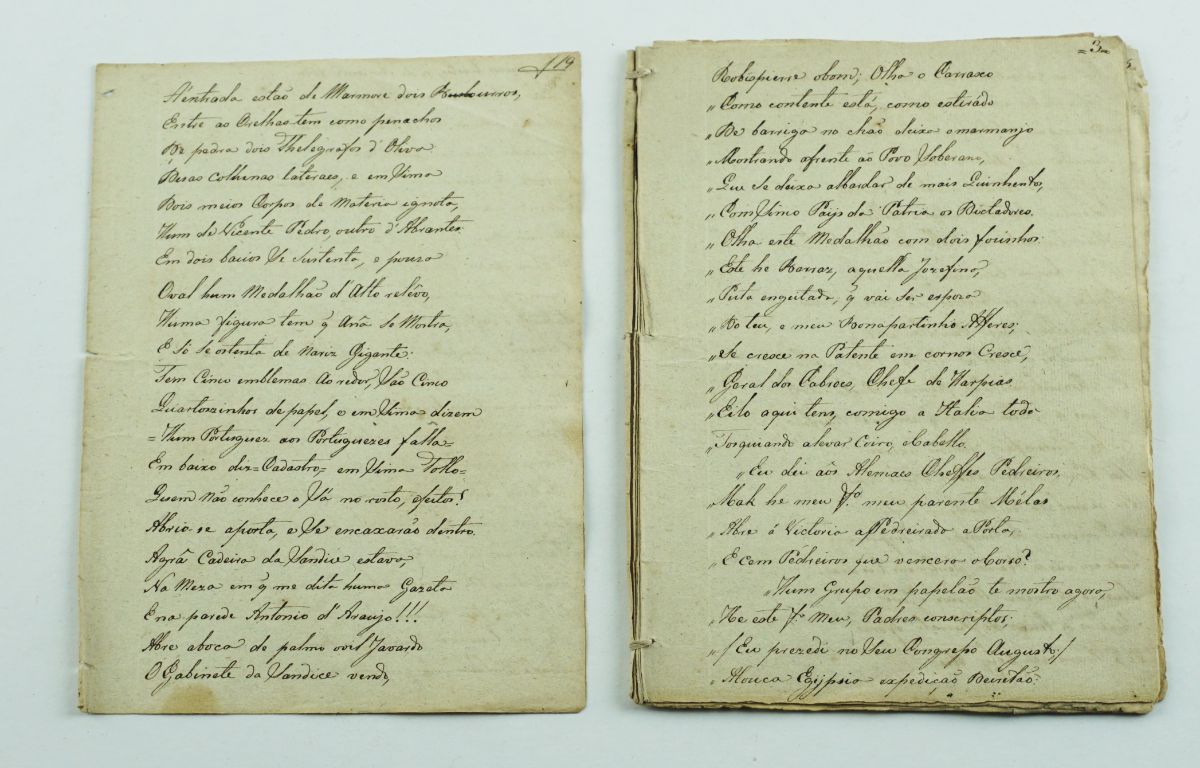 119
A'entrada estaõ de Marmore dois Burros,
Entre as Orelhas tem como penachos
De pedra dois Thelegrafos d'Oliva
Duas colunas lateraes, e em Sima
Dois meios Corpos de Materia egnota,
Hum de Vicente Pedro, outro d'Abrantes:
Em dois bacios Se Sustenta, e pouza
Oval hum Medalhaõ d'Alto relêvo,
Huma figura tem q̃ Anã se Mostra,
E Só Se ostenta de Nariz Gigante:
Tem Cinco emblemas ao redor, Saõ Cinco
Quartoszinhos de papel, e em Sima dizem
=Hum Portuguez aos Portuguezes falla=
Em baixo diz=Cadastro= em Sima Tollo=
Quem naõ conhece o Sá no rosto, efeitos!
Abrio-se aporta, e Se encaxaraõ dentro.
Agrã Cadeira da Sandice estava,
Na Meza em q̃ me dita huma Gazeta
Ena parede Antonio d'Araujo!!!
Abre aboca de palmo ovil Javardo
O Gabinete da Sandice vendo,
=3=
Robispierre obom; Olha o Carraxo
"Como contente está, como estirado
"De barriga no chaõ deixa omarmanjo
"Mostrando afrente aõ Povo Soberano,
"Que Se deixa albardar de mais Quinhentos,
"Com Simo Pays da Patria os Dictadores.
"Olha este Medalhaõ com dois focinhos:
"Este he Barraz, aquella Jozefina,
"Puta engeitada, q̃ vai Ser espoza
"Do teu, e meu Bonapartinho Alferes;
"Se cresce na Patente em cornos Cresce,
"Geral dos Cabroes, Chefe de Harpias
"Eilo aqui tens, comigo a Italia toda
"Torquiando alevar Coiro, eCabello.
"Eu dei aõs Alemaes Cheffes Pedreiros,
"Mak he meu Fo. meu parente Mélas
"Abre á Victoria aPedreirado a Porta,
"E cem Pedreiros que vencera o Corso?
"Hum Grupo em papelaõ te mostro agora,
"He este Fo. Meu, Padres conscriptos:
"/Eu prezedi no Seu Congresso Augusto:/
"Mouca Egypsia expediçaõ